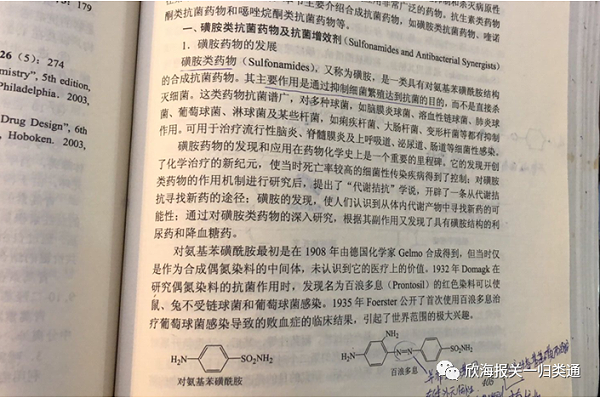 179
26（5）：274
mistry”, 5th edition,
Philadelphia. 2003,
Drug Design”, 6th
Hoboken. 2003,
酮类抗菌药物和噁唑烷酮类抗菌药物等。
一、磺胺类抗菌药物及抗菌增效剂（Sulfonamides and Antibacterial Synergists）
1．磺胺药物的发展
磺胺类药物（Sulfonamides），又称为磺胺，是一类具有对氨基苯磺酰胺结构
的合成抗菌药物。其主要作用是通过抑制细菌繁殖达到抗菌的目的，而不是直接杀
灭细菌。这类药物抗菌谱广，对多种球菌，如脑膜炎球菌、溶血性链球菌、肺炎球
菌、葡萄球菌、淋球菌及某些杆菌，如痢疾杆菌、大肠杆菌、变形杆菌等都有抑制
作用。可用于治疗流行性脑炎、脊髓膜炎及上呼吸道、泌尿道、肠道等细菌性感染。
磺胺药物的发现和应用在药物化学史上是一个重要的里程碑。它的发现开创
了化学治疗的新纪元，使当时死亡率较高的细菌性传染疾病得到了控制；对磺胺
类药物的作用机制进行研究后，提出了“代谢拮抗”学说，开辟了一条从代谢拮
抗寻找新药的途径；磺胺的发现，使人们认识到从体内代谢产物中寻找新药的可
能性；通过对磺胺类药物的深入研究，根据其副作用又发现了具有磺胺结构的利
尿药和降血糖药。
对氨基苯磺酰胺最初是在 1908 年由德国化学家 Gelmo 合成得到，但当时仅
是作为合成偶氮染料的中间体，未认识到它的医疗上的价值。1932 年 Domagk 在
研究偶氮染料的抗菌作用时，发现名为百浪多息（Prontosil）的红色染料可以使
鼠、兔不受链球菌和葡萄球菌感染。1935 年 Foerster 公开了首次使用百浪多息治
疗葡萄球菌感染导致的败血症的临床结果，引起了世界范围的极大兴趣。
NH₂
H₂N SO₂NH₂ H₂N N=N SO₂NH₂
对氨基苯磺酰胺 百浪多息
欣海报关一归类通